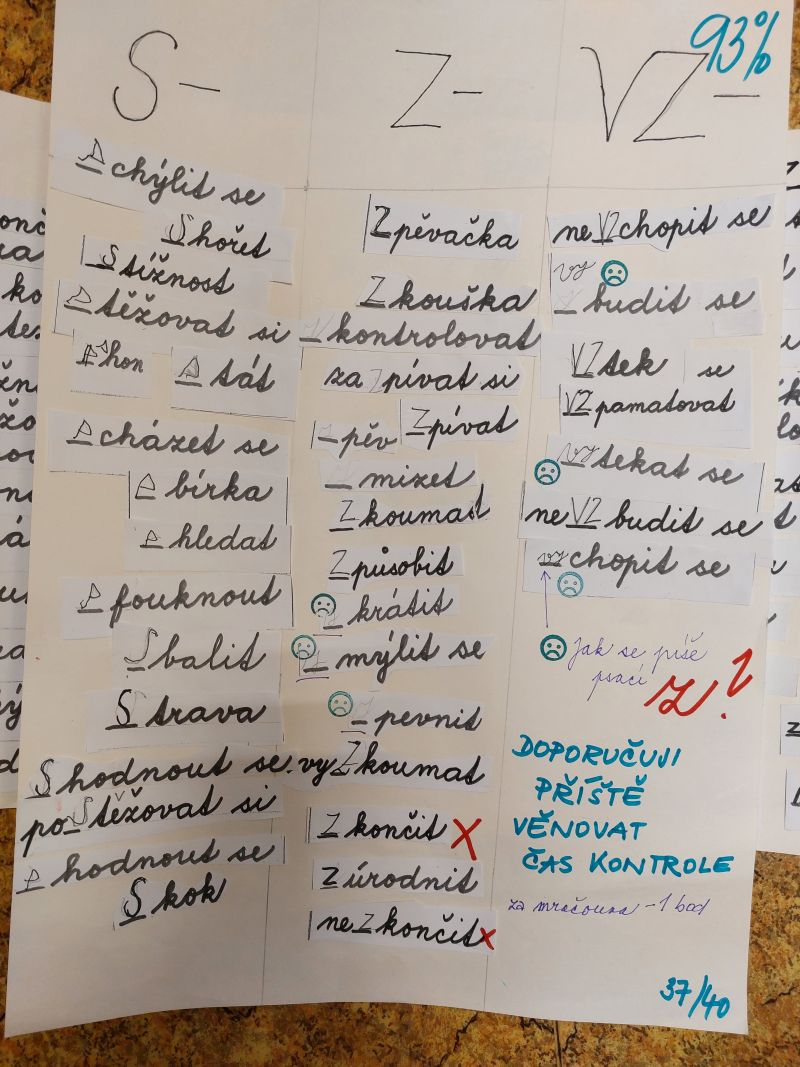 S-
schýlit se
Shořet
Stížnost
stěžovat si
shon
stát
scházet se
sbírka
shledat
sfouknout
Sbalit
Strava
Shodnout se
poStěžovat si
shodnout se
Skok
Z-
Zpěvačka
Zkouška
Zkontrolovat
zaZpívat si
Zpívat
Zpěv
Zmizet
Zkoumat
Způsobit
Zkrátit
Zmýlit se
Zpevnit
vyZkoumat
Zkončit X
Zúrodnit
neZkončit x
93%
VZ-
neVZchopit se
vzbudit se
VZtek se
VZpamatovat
vztekat se
neVZbudit se
vzchopit se
Jak se píše
psací z?
DOPORUČUJI
PŘÍŠTĚ
VĚNOVAT
ČAS KONTROLE
za mračouna -1 bod
37/40